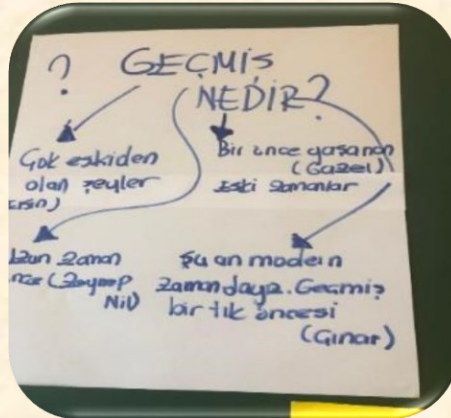 ? GEÇMİS
NEDİR?
Çok eskiden
olan şeyler
Bir önce yaşanan
(Gazel)
Eski zamanlar
Zaman
(Zeynep
Nil)
Şu an modern
zamandayız. Geçmiş
bir tık öncesi
(Çınar)